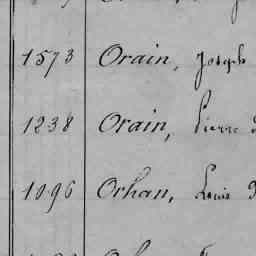 1573 Orain, Joseph
1238 Orain, Pierre
1096 Orhan, Louis